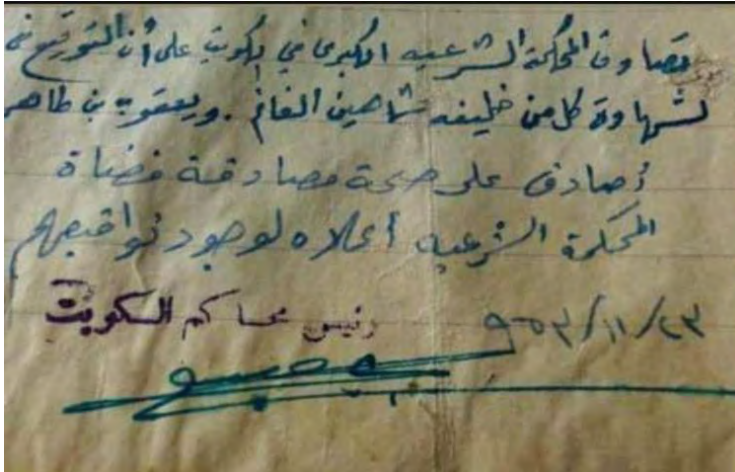 تصادق المحكمة الشرعيه الكبرى في الكويت على أن التوقيع في
لشهادة كل من خليفه شاهين الغانم . ويعقوب بن طاهر
أصادق على صحة مصادقة قضاة
المحكمة الشرعيه أعلاه لوجود تواقيعهم
رئيس محاكم الكويت
٩٥٣/١١/٢٣